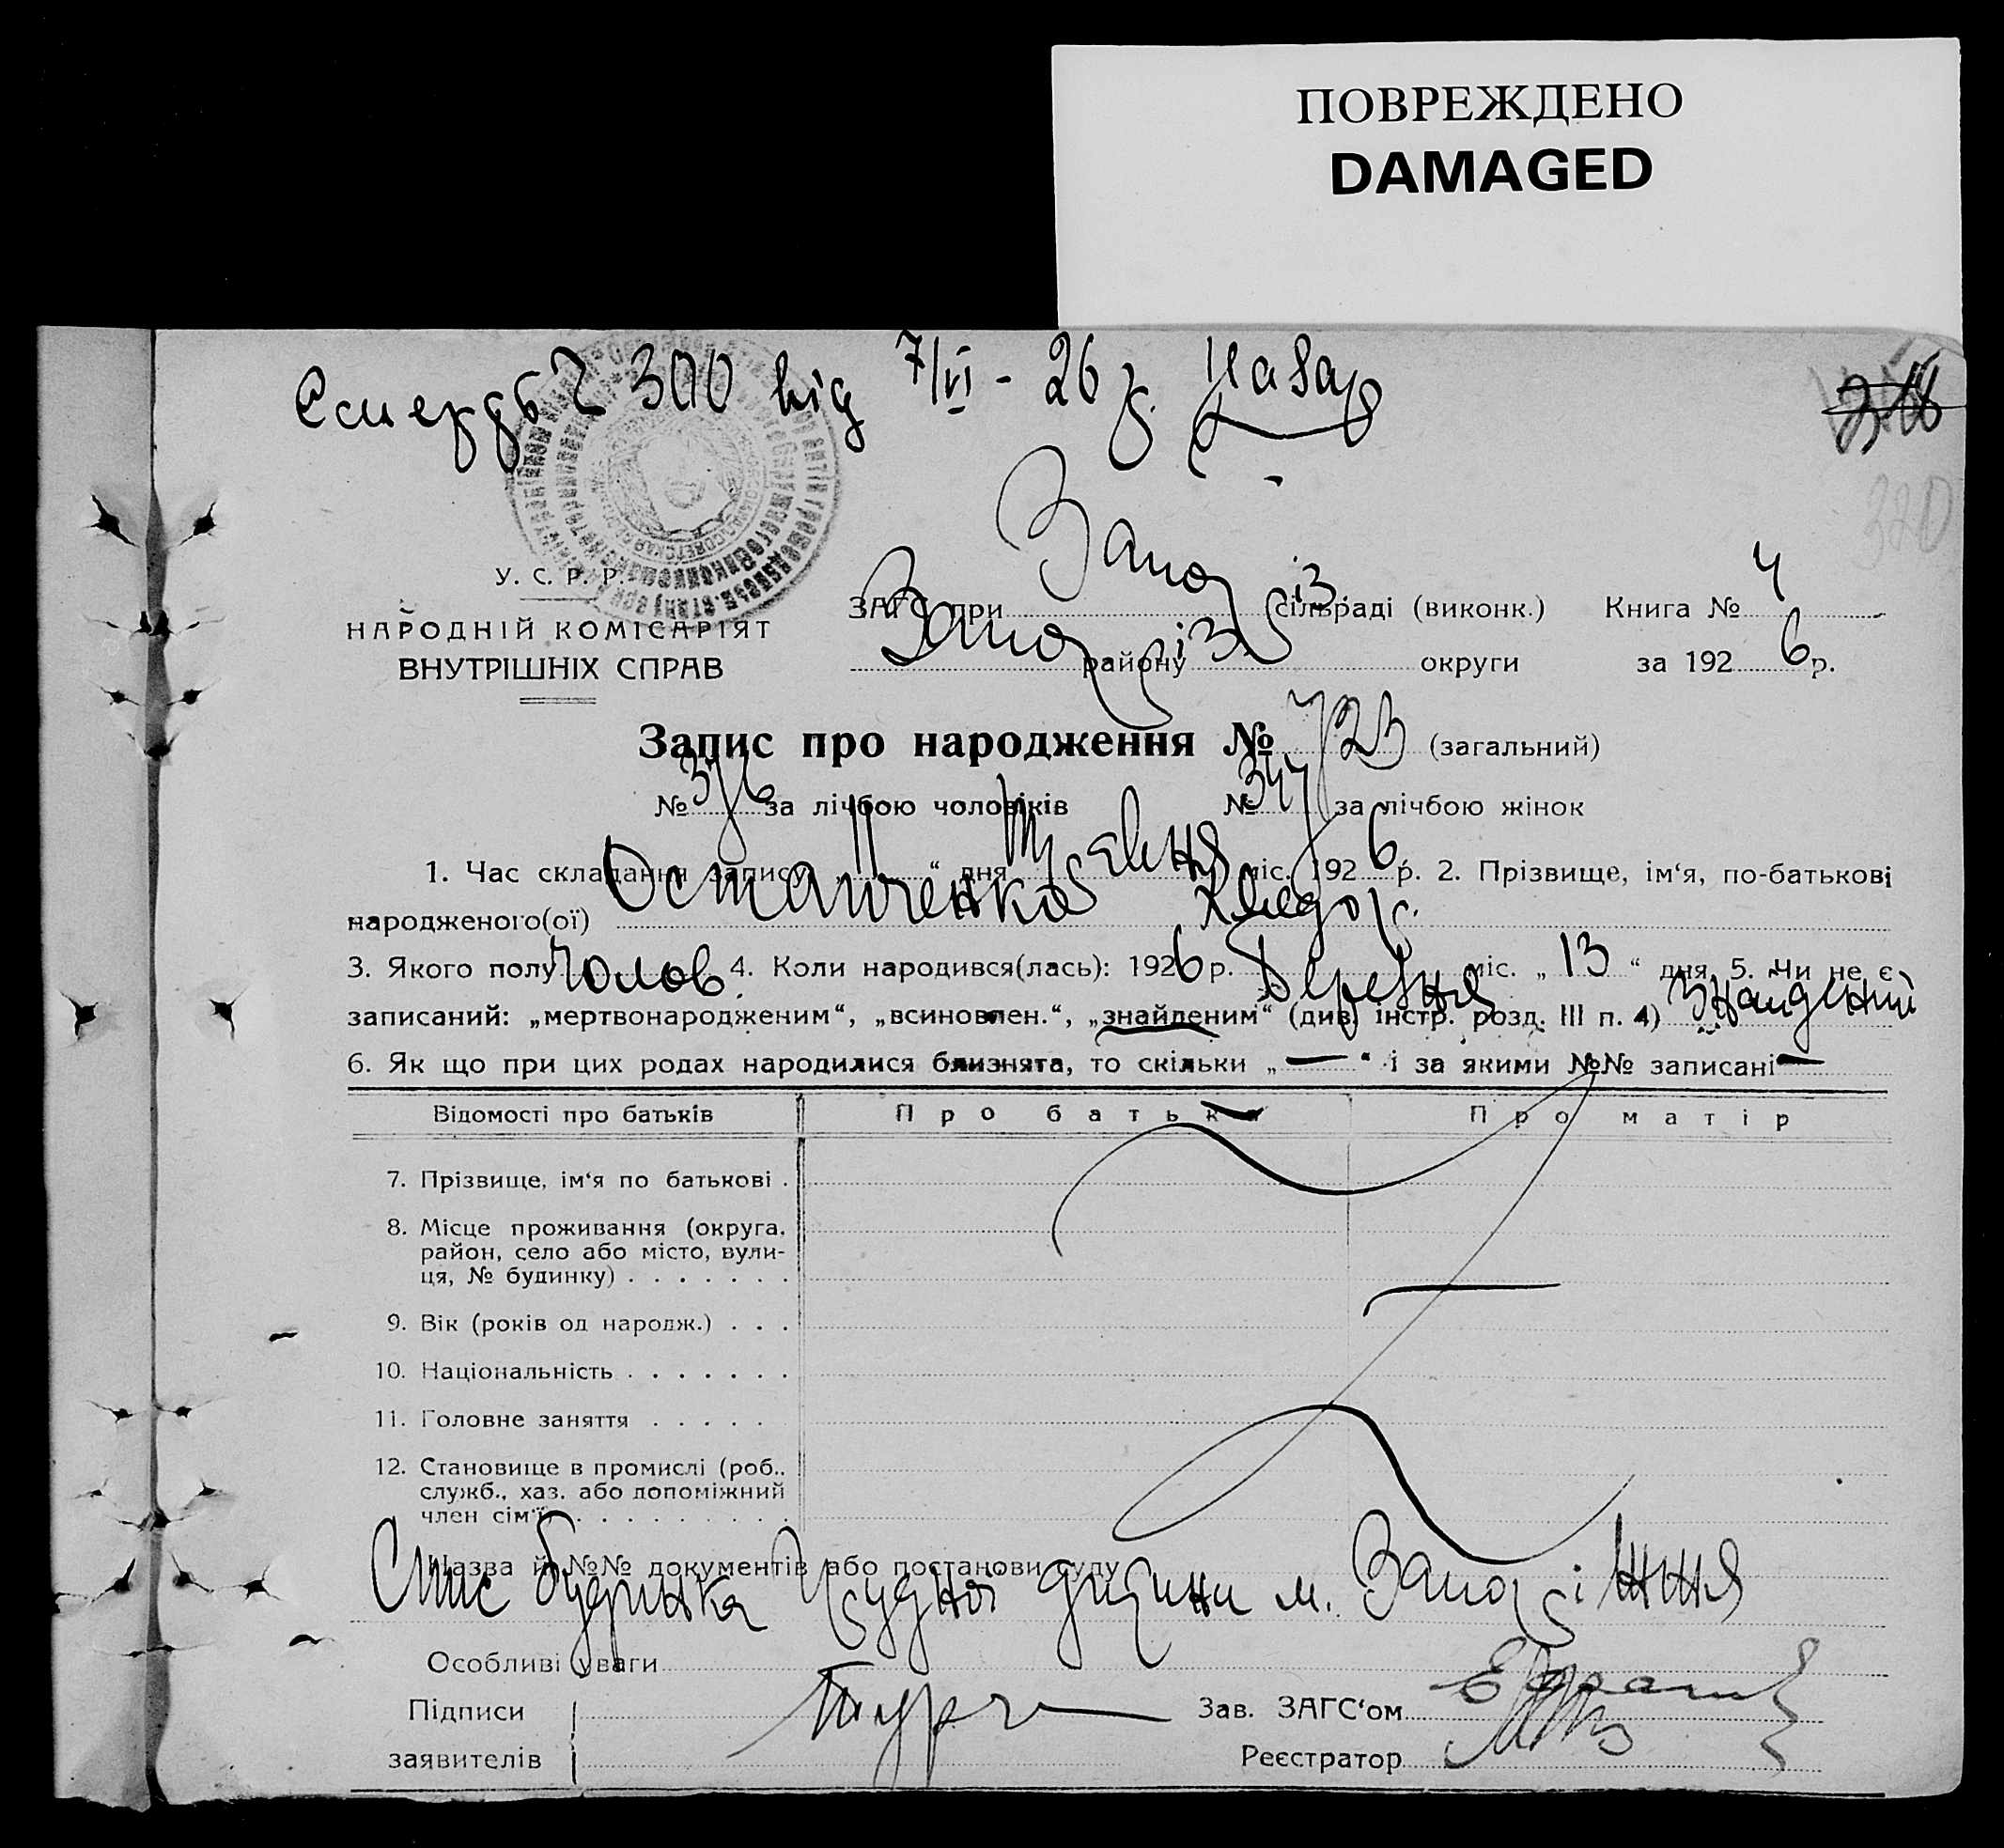 ПОВРЕЖДЕНО
DAMAGED
Є смердь Ч 300 від 7/VI - 26 р.
320
У. С. Р. Р.
НАРОДНІЙ КОМІСАРІЯТ
ВНУТРІШНІХ СПРАВ
ЗАГС при Запоріз. сільраді (виконк.) Книга № 4
Запоріз. району округи за 1926 р.
Запис про народження № 723 (загальний)
№ 376 за лічбою чоловіків № 347 за лічбою жінок
1. Час складання запису „ “ дня міс. 1926 р. 2. Прізвище, ім‘я, по-батькові
народженого(ої) Остапченко
3. Якого полу Чолов. 4. Коли народився(лась): 1926 р. Березня міс. „ 13 “ дня, 5. Чи не є
записаний: „мертвонародженим“, „всиновлен.“, „знайденим“ (див. інстр. розд. III п. 4) Знайдений
6. Як що при цих родах народилися близнята, то скільки „ — “ і за якими №№ записані —
Відомості про батьків Про батька Про матір
7. Прізвище, ім‘я по батькові .
8. Місце проживання (округа,
район, село або місто, вули-
ця, № будинку) . . . . . . .
9. Вік (років од народж.) . . .
10. Національність . . . . . . .
11. Головне заняття . . . . .
12. Становище в промислі (роб.,
служб., хаз. або допоміжний
член сім‘ї) . . . . . . . . .
Назва й №№ документів або постанови суду
Спис будинка Грудної дитини м. Запоріжжя
Особливі уваги
Підписи
заявителів
Зав. ЗАГС‘ом
Реєстратор